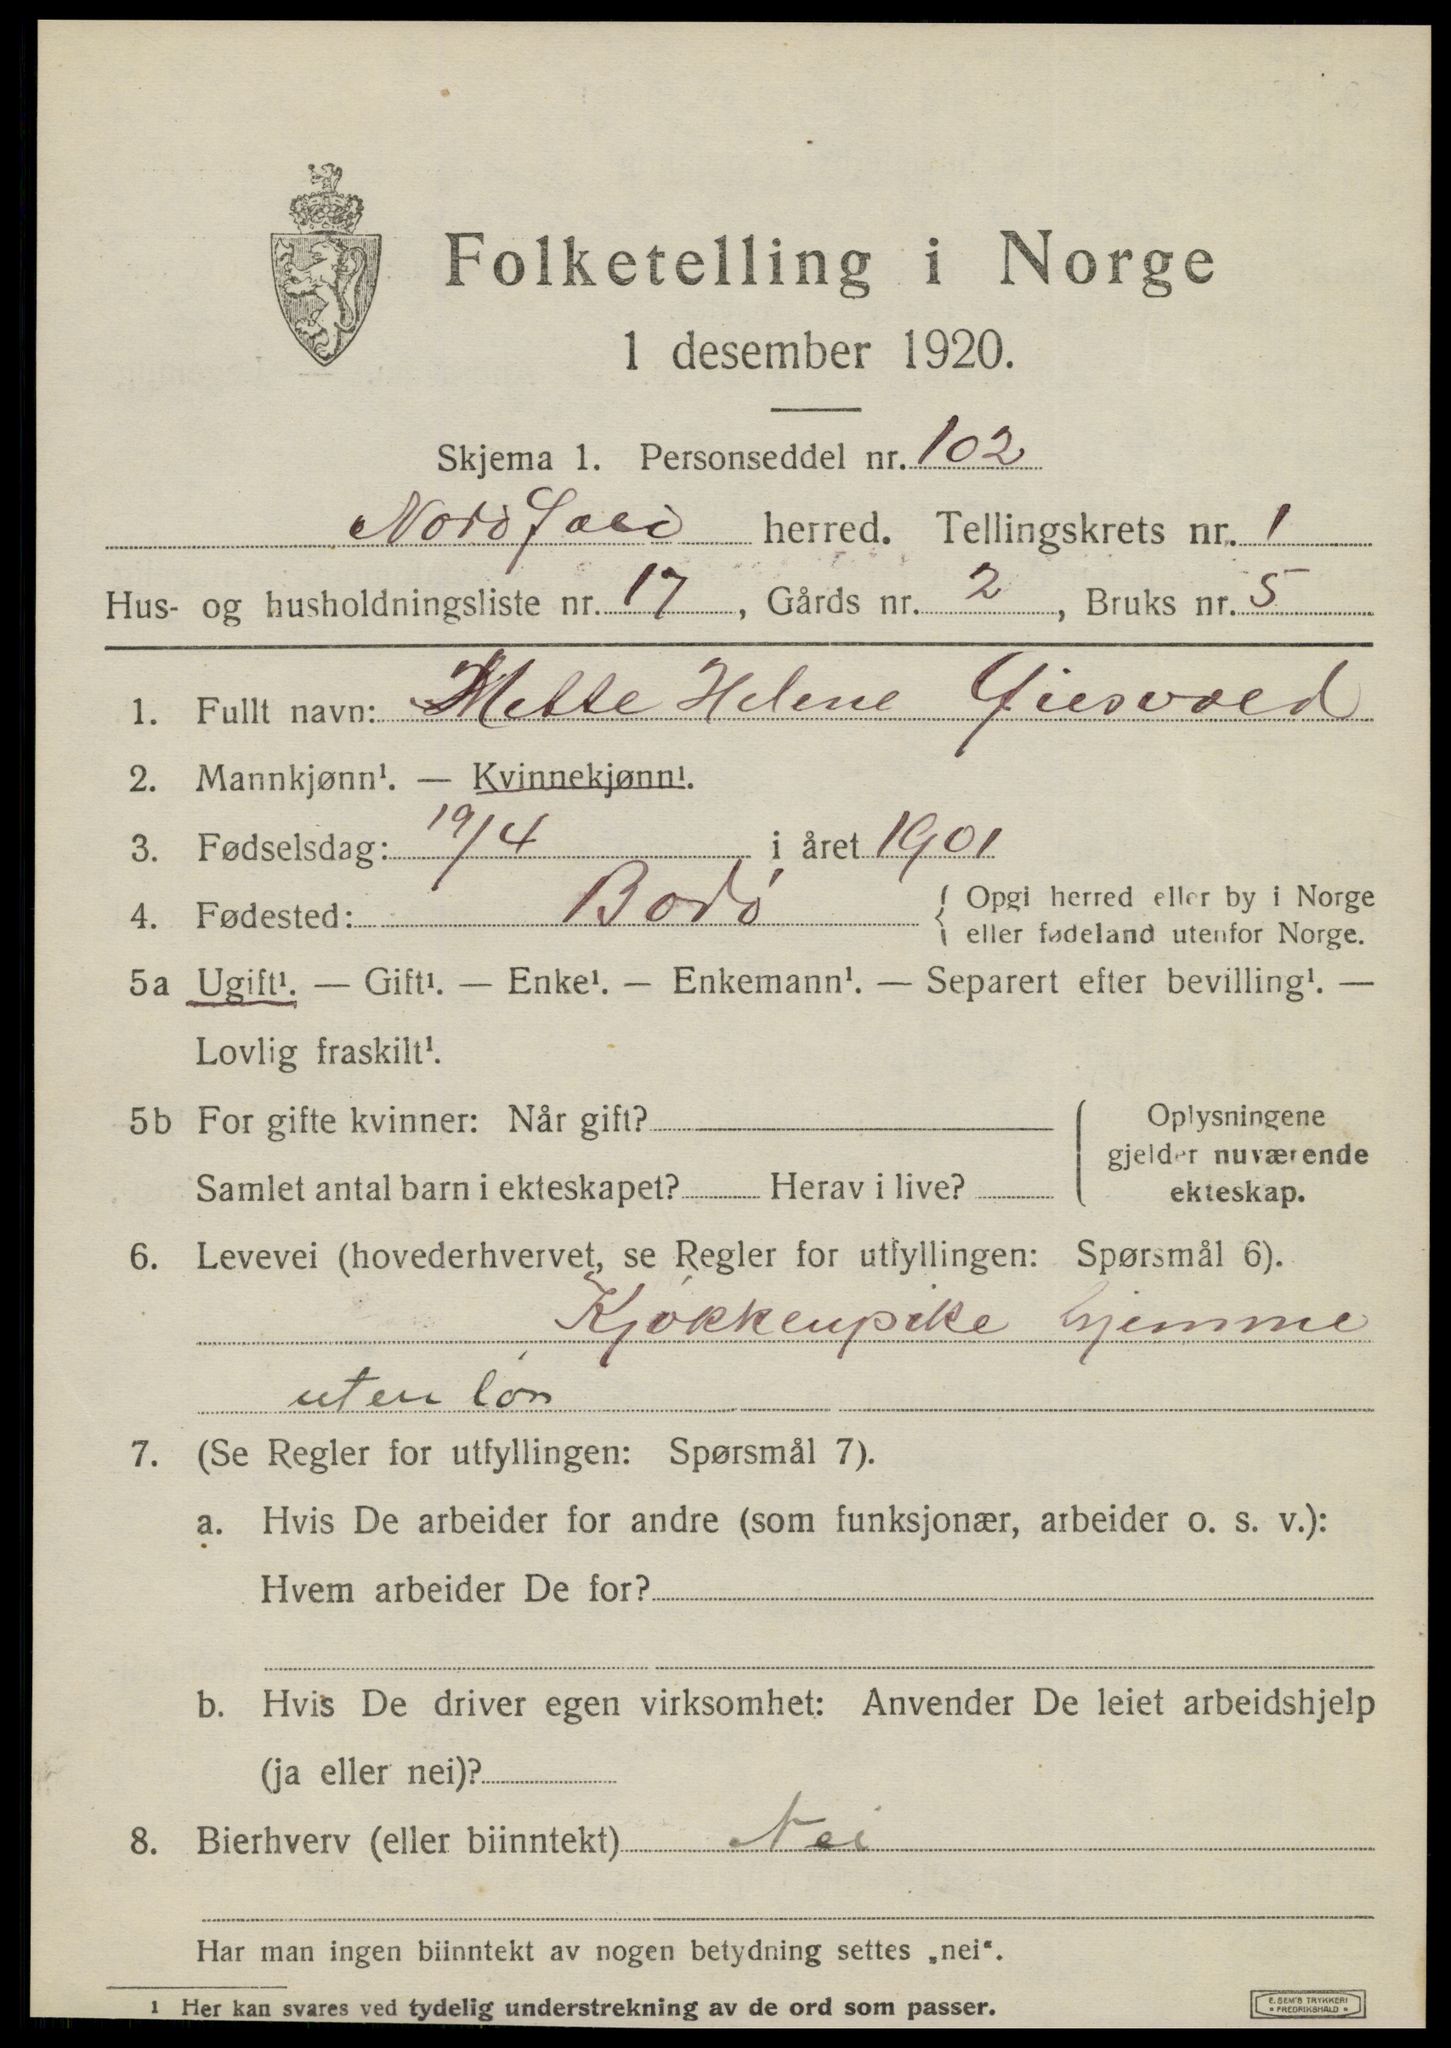 Folketelling i Norge
1 desember 1920.
Skjema 1. Personseddel nr. 102
herred. Tellingskrets nr. 1
Hus- og husholdningsliste nr. 17, Gårds nr. 2, Bruks nr. 5
1. Fullt navn: Mette Helene
2. Mannkjønn¹. — Kvinnekjønn¹.
3. Fødselsdag: 19/4 i året 1901
4. Fødested: Bodø { Opgi herred eller by i Norge
eller fødeland utenfor Norge.
5a Ugift¹. — Gift¹. — Enke¹. — Enkemann¹. — Separert efter bevilling¹. —
Lovlig fraskilt¹.
5b For gifte kvinner: Når gift?
Samlet antal barn i ekteskapet? Herav i live?
Oplysningene
gjelder nuværende
ekteskap.
6. Levevei (hovederhvervet, se Regler for utfyllingen: Spørsmål 6).
Kjøkkenpike hjemme
uten løn
7. (Se Regler for utfyllingen: Spørsmål 7).
a. Hvis De arbeider for andre (som funksjonær, arbeider o. s. v.):
Hvem arbeider De for?
b. Hvis De driver egen virksomhet: Anvender De leiet arbeidshjelp
(ja eller nei)?
8. Bierhverv (eller biinntekt) Nei
Har man ingen biinntekt av nogen betydning settes „nei“.
1 Her kan svares ved tydelig understrekning av de ord som passer.
E. SEM'S TRYKKERI
FREDRIKSHALD